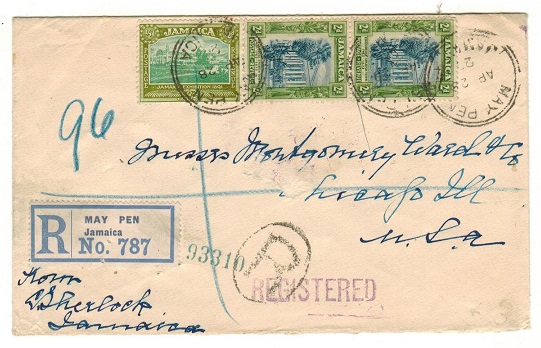 JAMAICA
JAMAICA EXHIBITION 1891
JAMAICA
JAMAICA
MAY PEN
96
Messrs Montgomery Ward & Co
Chicago Ill
U.S.A
R
MAY PEN
Jamaica
No. 787
93310
R
REGISTERED
From
Sherlock
Jamaica